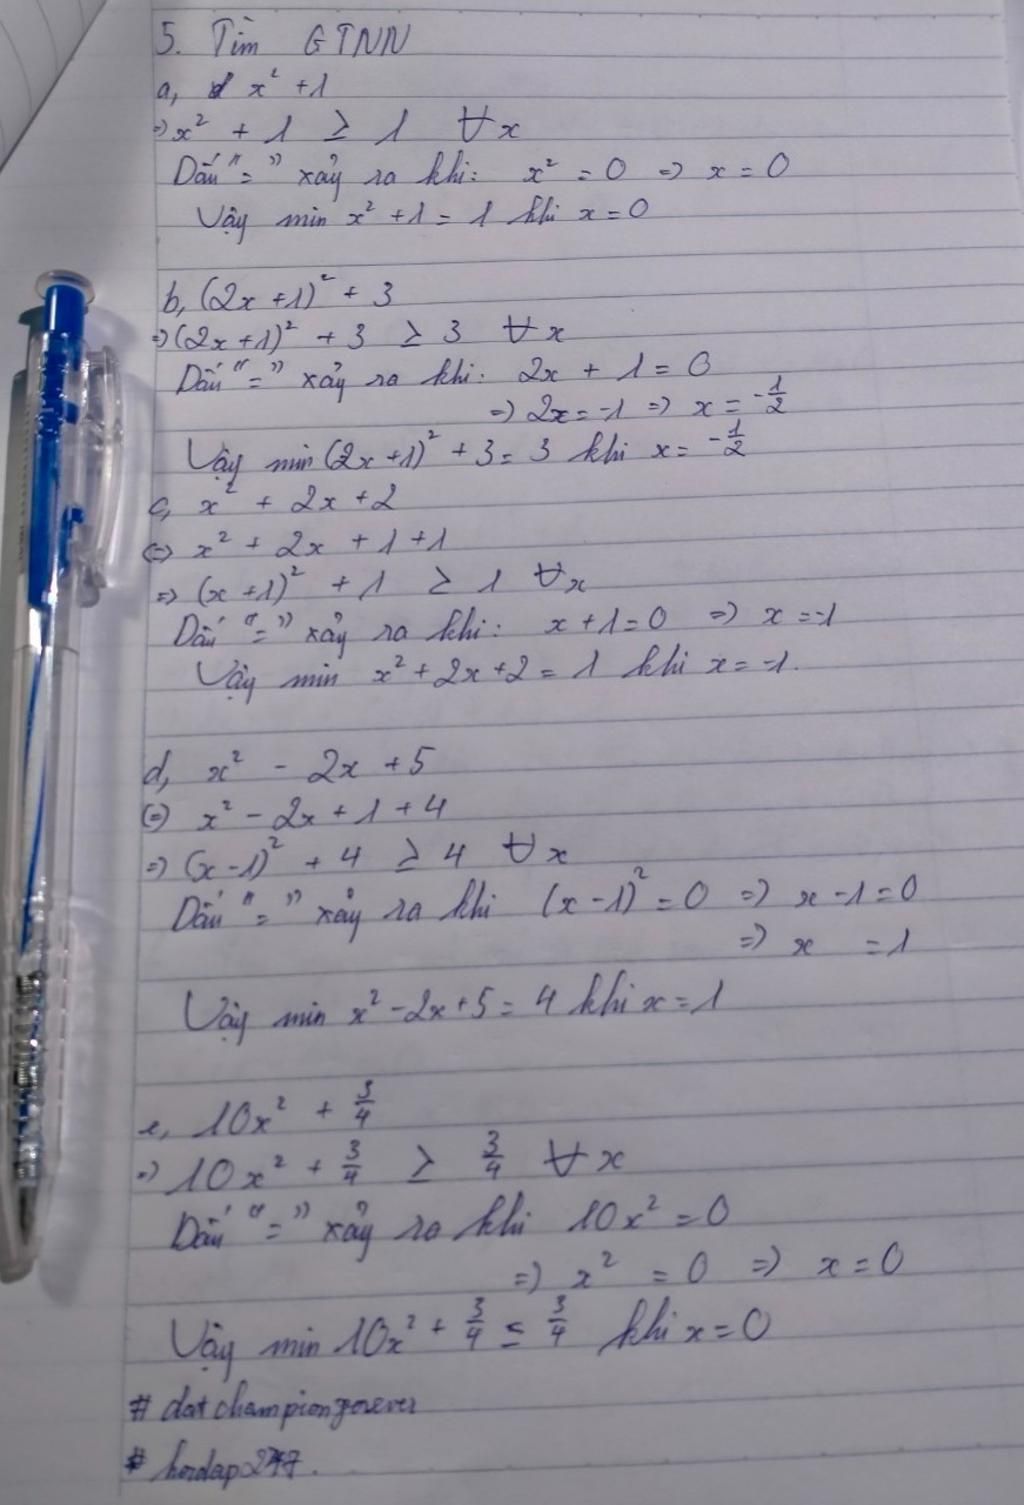 5. Tìm GTNN
a, x² + 1
=> x² + 1 ≥ 1 ∀x
Dấu "=" xảy ra khi: x² = 0 => x = 0
Vậy min x² + 1 = 1 khi x = 0
b, (2x + 1)² + 3
=> (2x + 1)² + 3 ≥ 3 ∀x
Dấu "=" xảy ra khi: 2x + 1 = 0
=> 2x = -1 => x = -1/2
Vậy min (2x + 1)² + 3 = 3 khi x = -1/2
c, x² + 2x + 2
(=) x² + 2x + 1 + 1
=> (x + 1)² + 1 ≥ 1 ∀x
Dấu "=" xảy ra khi: x + 1 = 0 => x = -1
Vậy min x² + 2x + 2 = 1 khi x = -1.
d, x² - 2x + 5
(=) x² - 2x + 1 + 4
=> (x - 1)² + 4 ≥ 4 ∀x
Dấu "=" xảy ra khi (x - 1)² = 0 => x - 1 = 0
=> x = 1
Vậy min x² - 2x + 5 = 4 khi x = 1
e, 10x² + 3/4
=> 10x² + 3/4 ≥ 3/4 ∀x
Dấu "=" xảy ra khi 10x² = 0
=> x² = 0 => x = 0
Vậy min 10x² + 3/4 = 3/4 khi x = 0
# datchampionforever
# hoidap247.